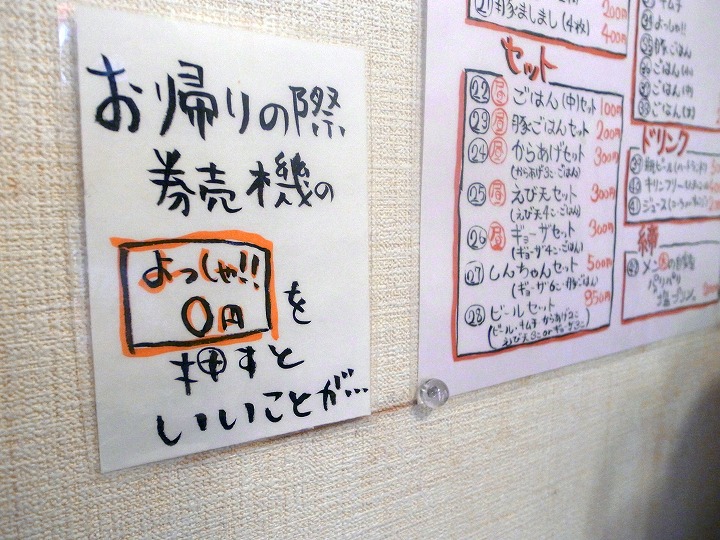 お帰りの際
券売機の
よっしゃ!!
0円
を
押すと
いいことが…
㉑豚ましまし(4枚) 200円
400円
セット
㉒昼ごはん(中)セット 100円
㉓昼豚ごはんセット 200円
㉔昼からあげセット 300円
(からあげ3こ・ごはん)
㉕昼えび天セット 300円
(えび天4こ・ごはん)
㉖昼ギョーザセット 300円
(ギョーザ4こ・ごはん)
㉗しんちゃんセット 500円
(ギョーザ6こ・豚ごはん)
㉘ビールセット 850円
(ビール・キムチ・からあげ2こ
えび天3こorギョーザ3こ)
キムチ
よっしゃ!!
豚ごはん
ごはん(小)
ごはん(中)
ごはん(大)
ドリンク
キリンフリー
ジュース
締
メン
パリパリ
塩プリン